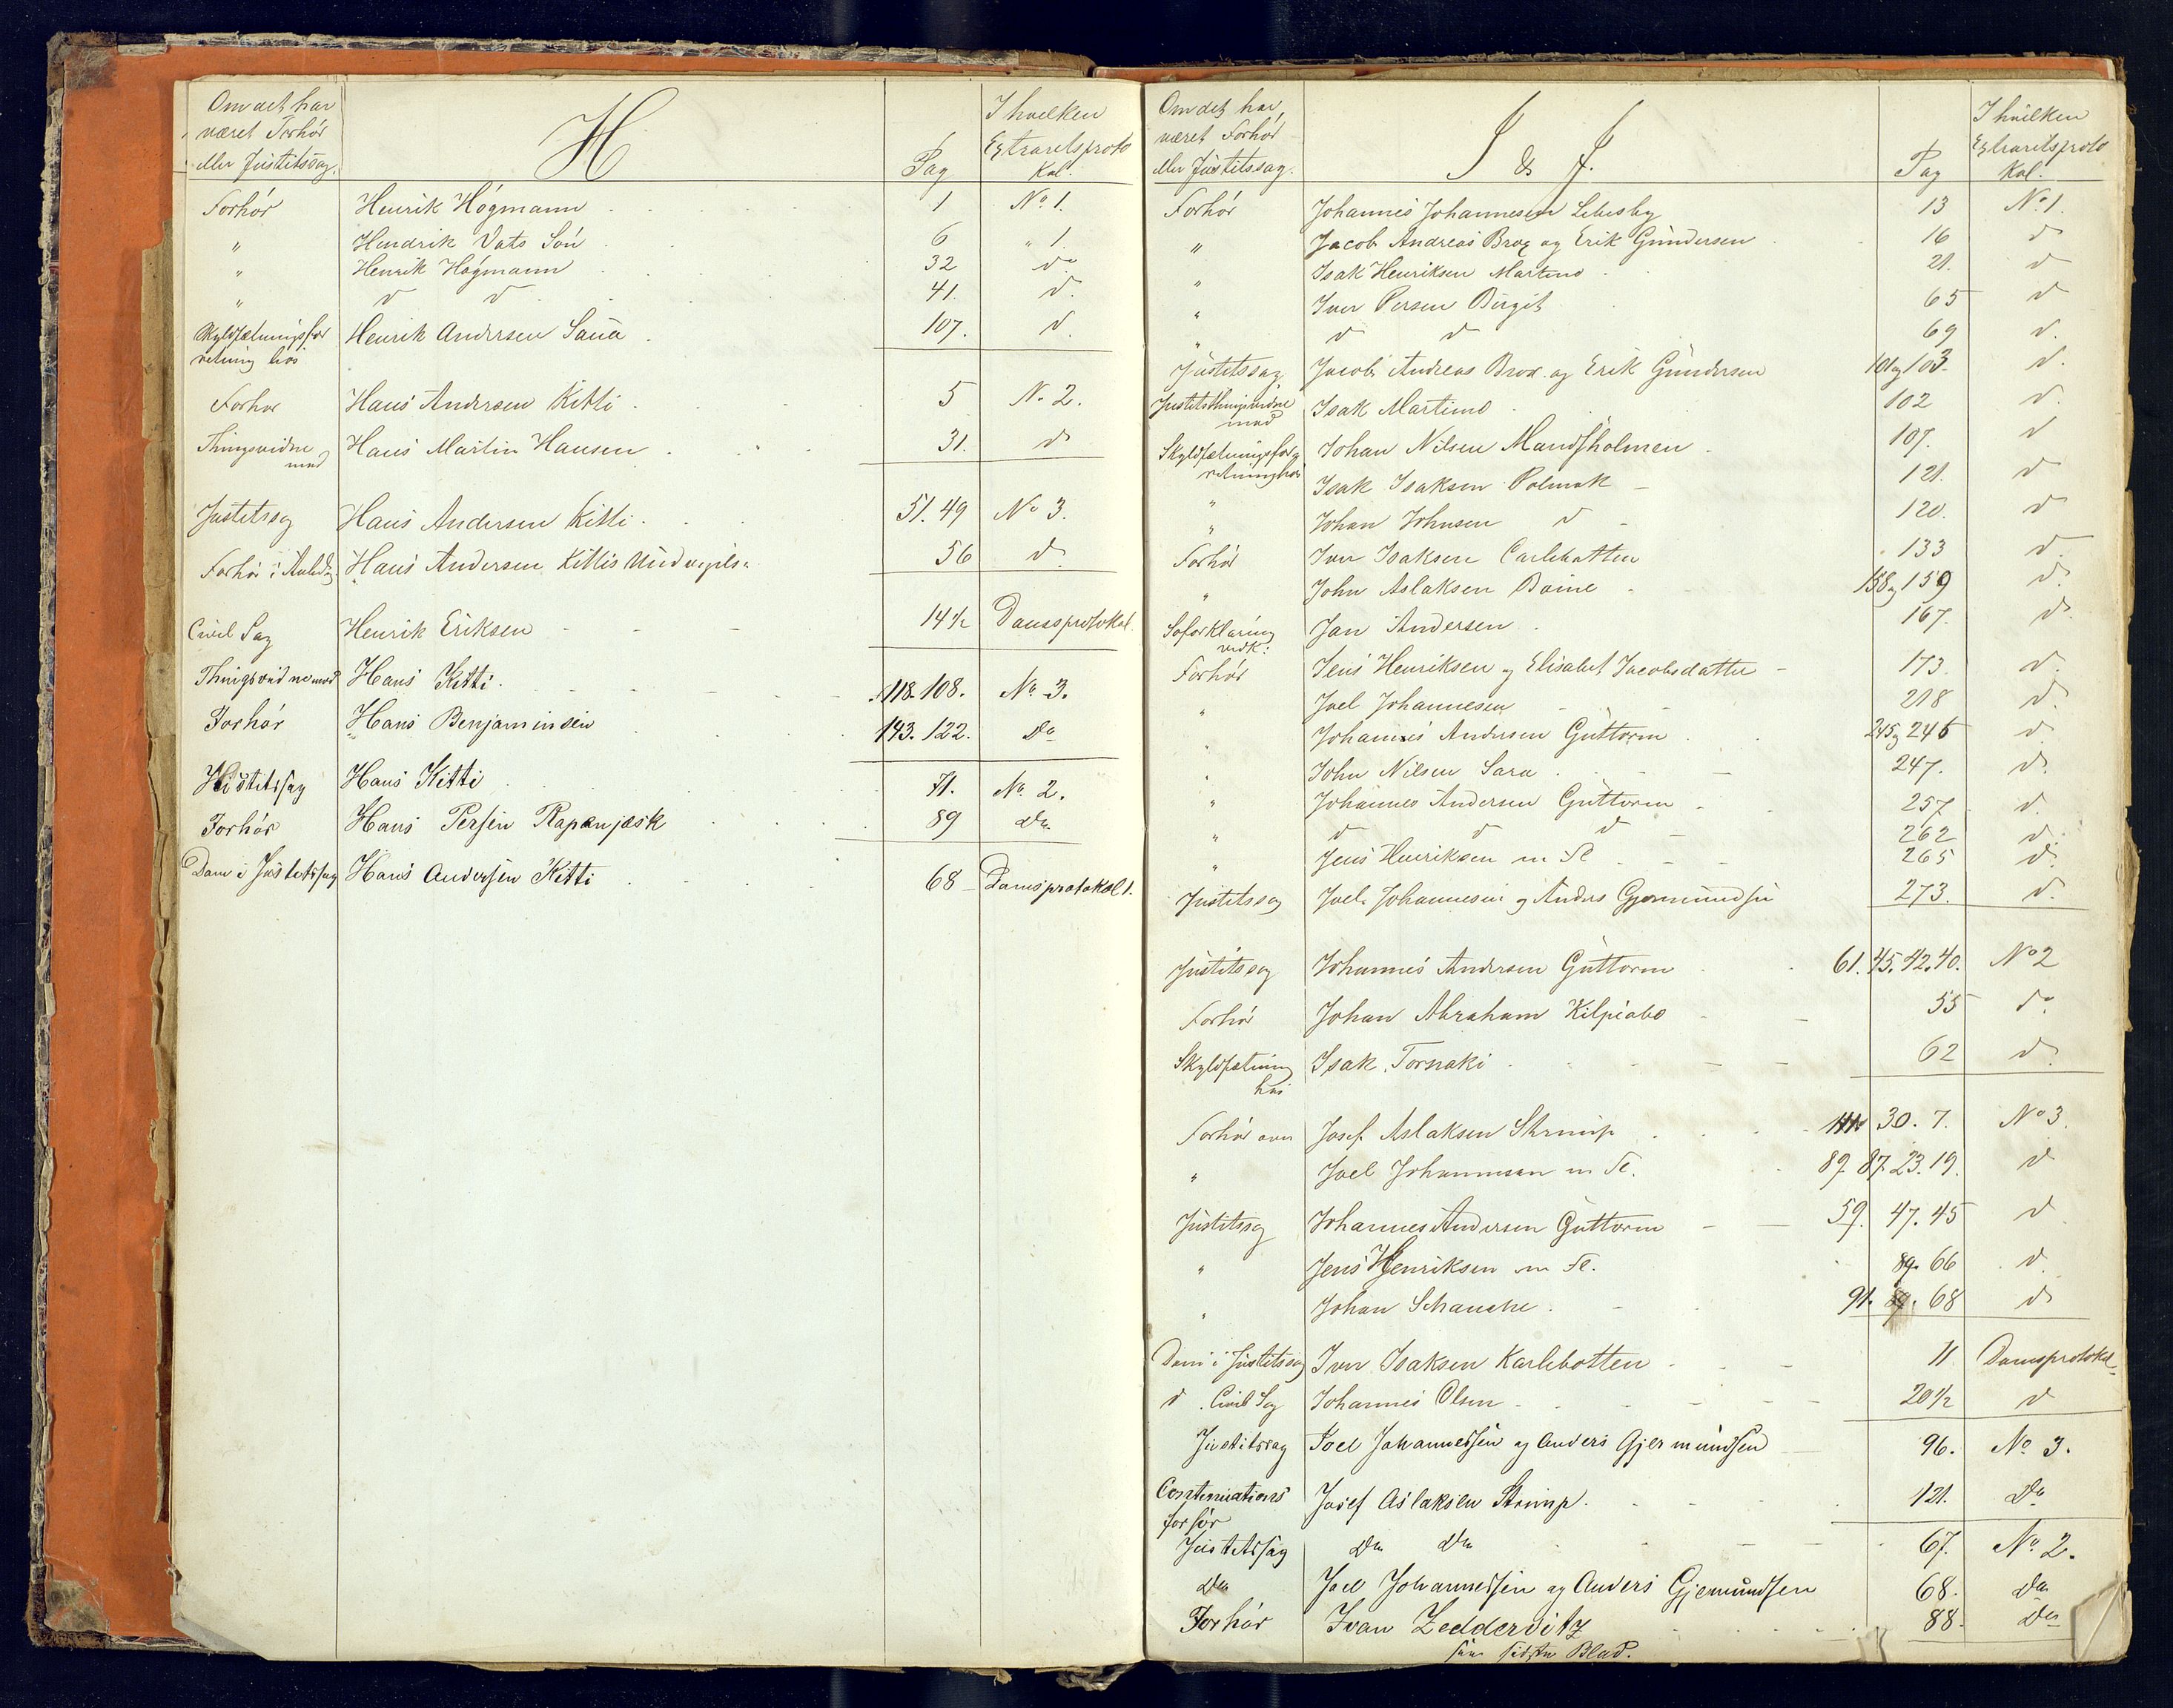 Om det har
været Forhör
eller Justitssag.
H
Pag
I hvilken
Extraretsproto
kol.
Forhör Henrik Högmann 1 No 1.
" Hendrik Vats Sön 6 " 1.
" Henrik Högmann 32 do
" d d 41. d.
Skyldsætningsfor
retning hos Henrik Andersen Saua 107. d.
Forhør Hans Andersen Kitti 5 No 2.
Thingsvidne
mod Hans Martin Hansen 31. d
Justitssag Hans Andersen Kitti 51. 49 No 3.
Forhör i Anledng. Hans Andersen Kittis 56 d
Civil Sag Henrik Eriksen 14½ Domsprotokol.
Thingsvidne mod Hans Kitti 118. 108. No 3.
Forhör Hans Benjaminsen 143. 122. Do
Justitssag Hans Kitti 71. No 2.
Forhör Hans Persen Rapanjask 89 Do
Dom i Justitssag Hans Andersen Kitti 68 Domsprotokol 1.
Om det har
været Forhör
eller Justitssag.
I & J.
Pag
I hvilken
Extraretsproto
kol.
Forhör Johannes Johannesen Lebesby 13 No 1.
" Jacob Andreas Brox og Erik Gundersen 16 d
" Isak Henriksen Martino 21. d
" Iver Persen Birgit 65 d
" d d 69 d.
Justitssag Jacob Andreas Brox og Erik Gundersen 101 og 103. d.
Justitsthingsvidne
mod Isak Martino 102 d.
Skyldsætningsfor
retning hos Johan Nilsen Mandsholmen 107. d
" Isak Isaksen Polmak 121. d
" Johan Johnsen d 120. d
Forhör Iver Isaksen Carlebotten 133 d.
" John Aslaksen Baine 158 og 159 d.
Søforklaring
vedk: Jan Andersen 167. d.
Forhör Jens Henriksen og Elisabet Jacobsdatter 173 d.
" Joel Johannesen 218 d.
" Johannes Andersen Guttorm 245 og 246 d
" John Nilsen Sara 247. d.
" Johannes Andersen Guttorm 257 d.
" d d d 262 d.
" Jens Henriksen m Fl 265 d.
Justitssag Joel Johannesen og Anders Gjermundsen 273. d.
Justitssag Johannes Andersen Guttorm 61. 45. 42. 40. No 2
Forhör Johan Abraham Kilpiabo 55 do
Skyldsætning
hos Isak Tornaki 62 d
Forhör over Josef Aslaksen Strimp 30. 7. No 3.
" Joel Johannesen m Fl. 89. 87. 23. 19. d
Justitssag Johannes Andersen Guttorm 59. 47. 45 d
" Jens Henriksen m Fl. 89. 66 d
" Johan Schanche 91. 89. 68 d
Dom i Justitssag Iver Isaksen Karlebotten 11 Domsprotokol
d Civil Sag Johannes Olsen 20½ d
Justitssag Joel Johannessen og Anders Gjermundsen 96. No 3.
Contenuations
forhör Josef Aslaksen Strimp 121. Do
Justitssag Do Do 67. No 2.
Do Joel Johannessen og Anders Gjermundsen 68. Do
Forhör Ivan Zeddervitz 88. Do
sidste Blad.